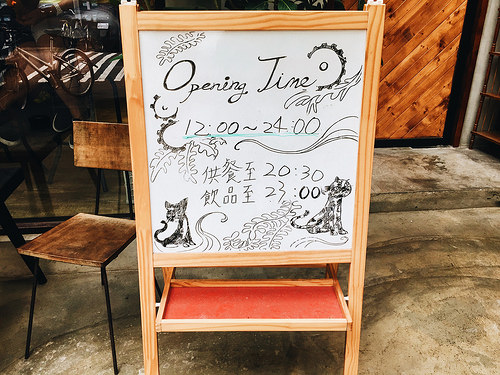 Opening Time
12:00~24:00
供餐至 20:30
飲品至 23:00